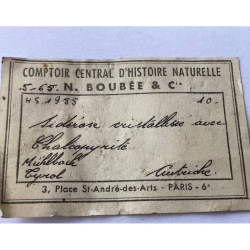 COMPTOIR CENTRAL D'HISTOIRE NATURELLE
5-65. N. BOUBÉE & Cie
HS.1955 10.-
Sidérose cristallisée avec
Chalcopyrite
Mühlbach
Tyrol Autriche
3, Place St-André-des-Arts - PARIS - 6e